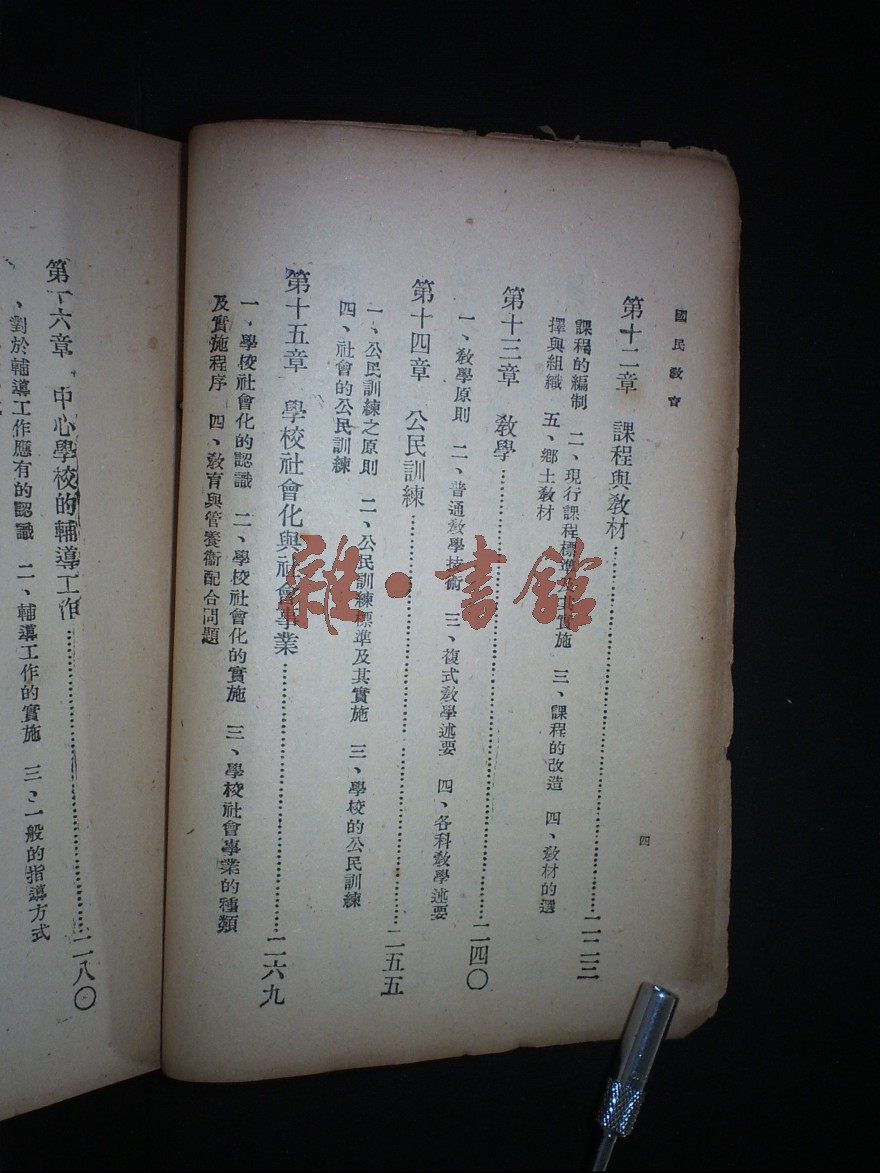 國民教育
四
第十二章 課程與教材……二二三
課程的編制 二、現行課程標準及其實施 三、課程的改造 四、教材的選
擇與組織 五、鄉土教材
第十三章 教學……二四〇
一、教學原則 二、普通教學技術 三、複式教學述要 四、各科教學述要
第十四章 公民訓練……二五五
一、公民訓練之原則 二、公民訓練標準及其實施 三、學校的公民訓練
四、社會的公民訓練
第十五章 學校社會化與社會事業……二六九
一、學校社會化的認識 二、學校社會化的實施 三、學校社會事業的種類
及實施程序 四、教育與管養衞配合問題
第十六章 中心學校的輔導工作……二八〇
、對於輔導工作應有的認識 二、輔導工作的實施 三、一般的指導方式
雜·書館